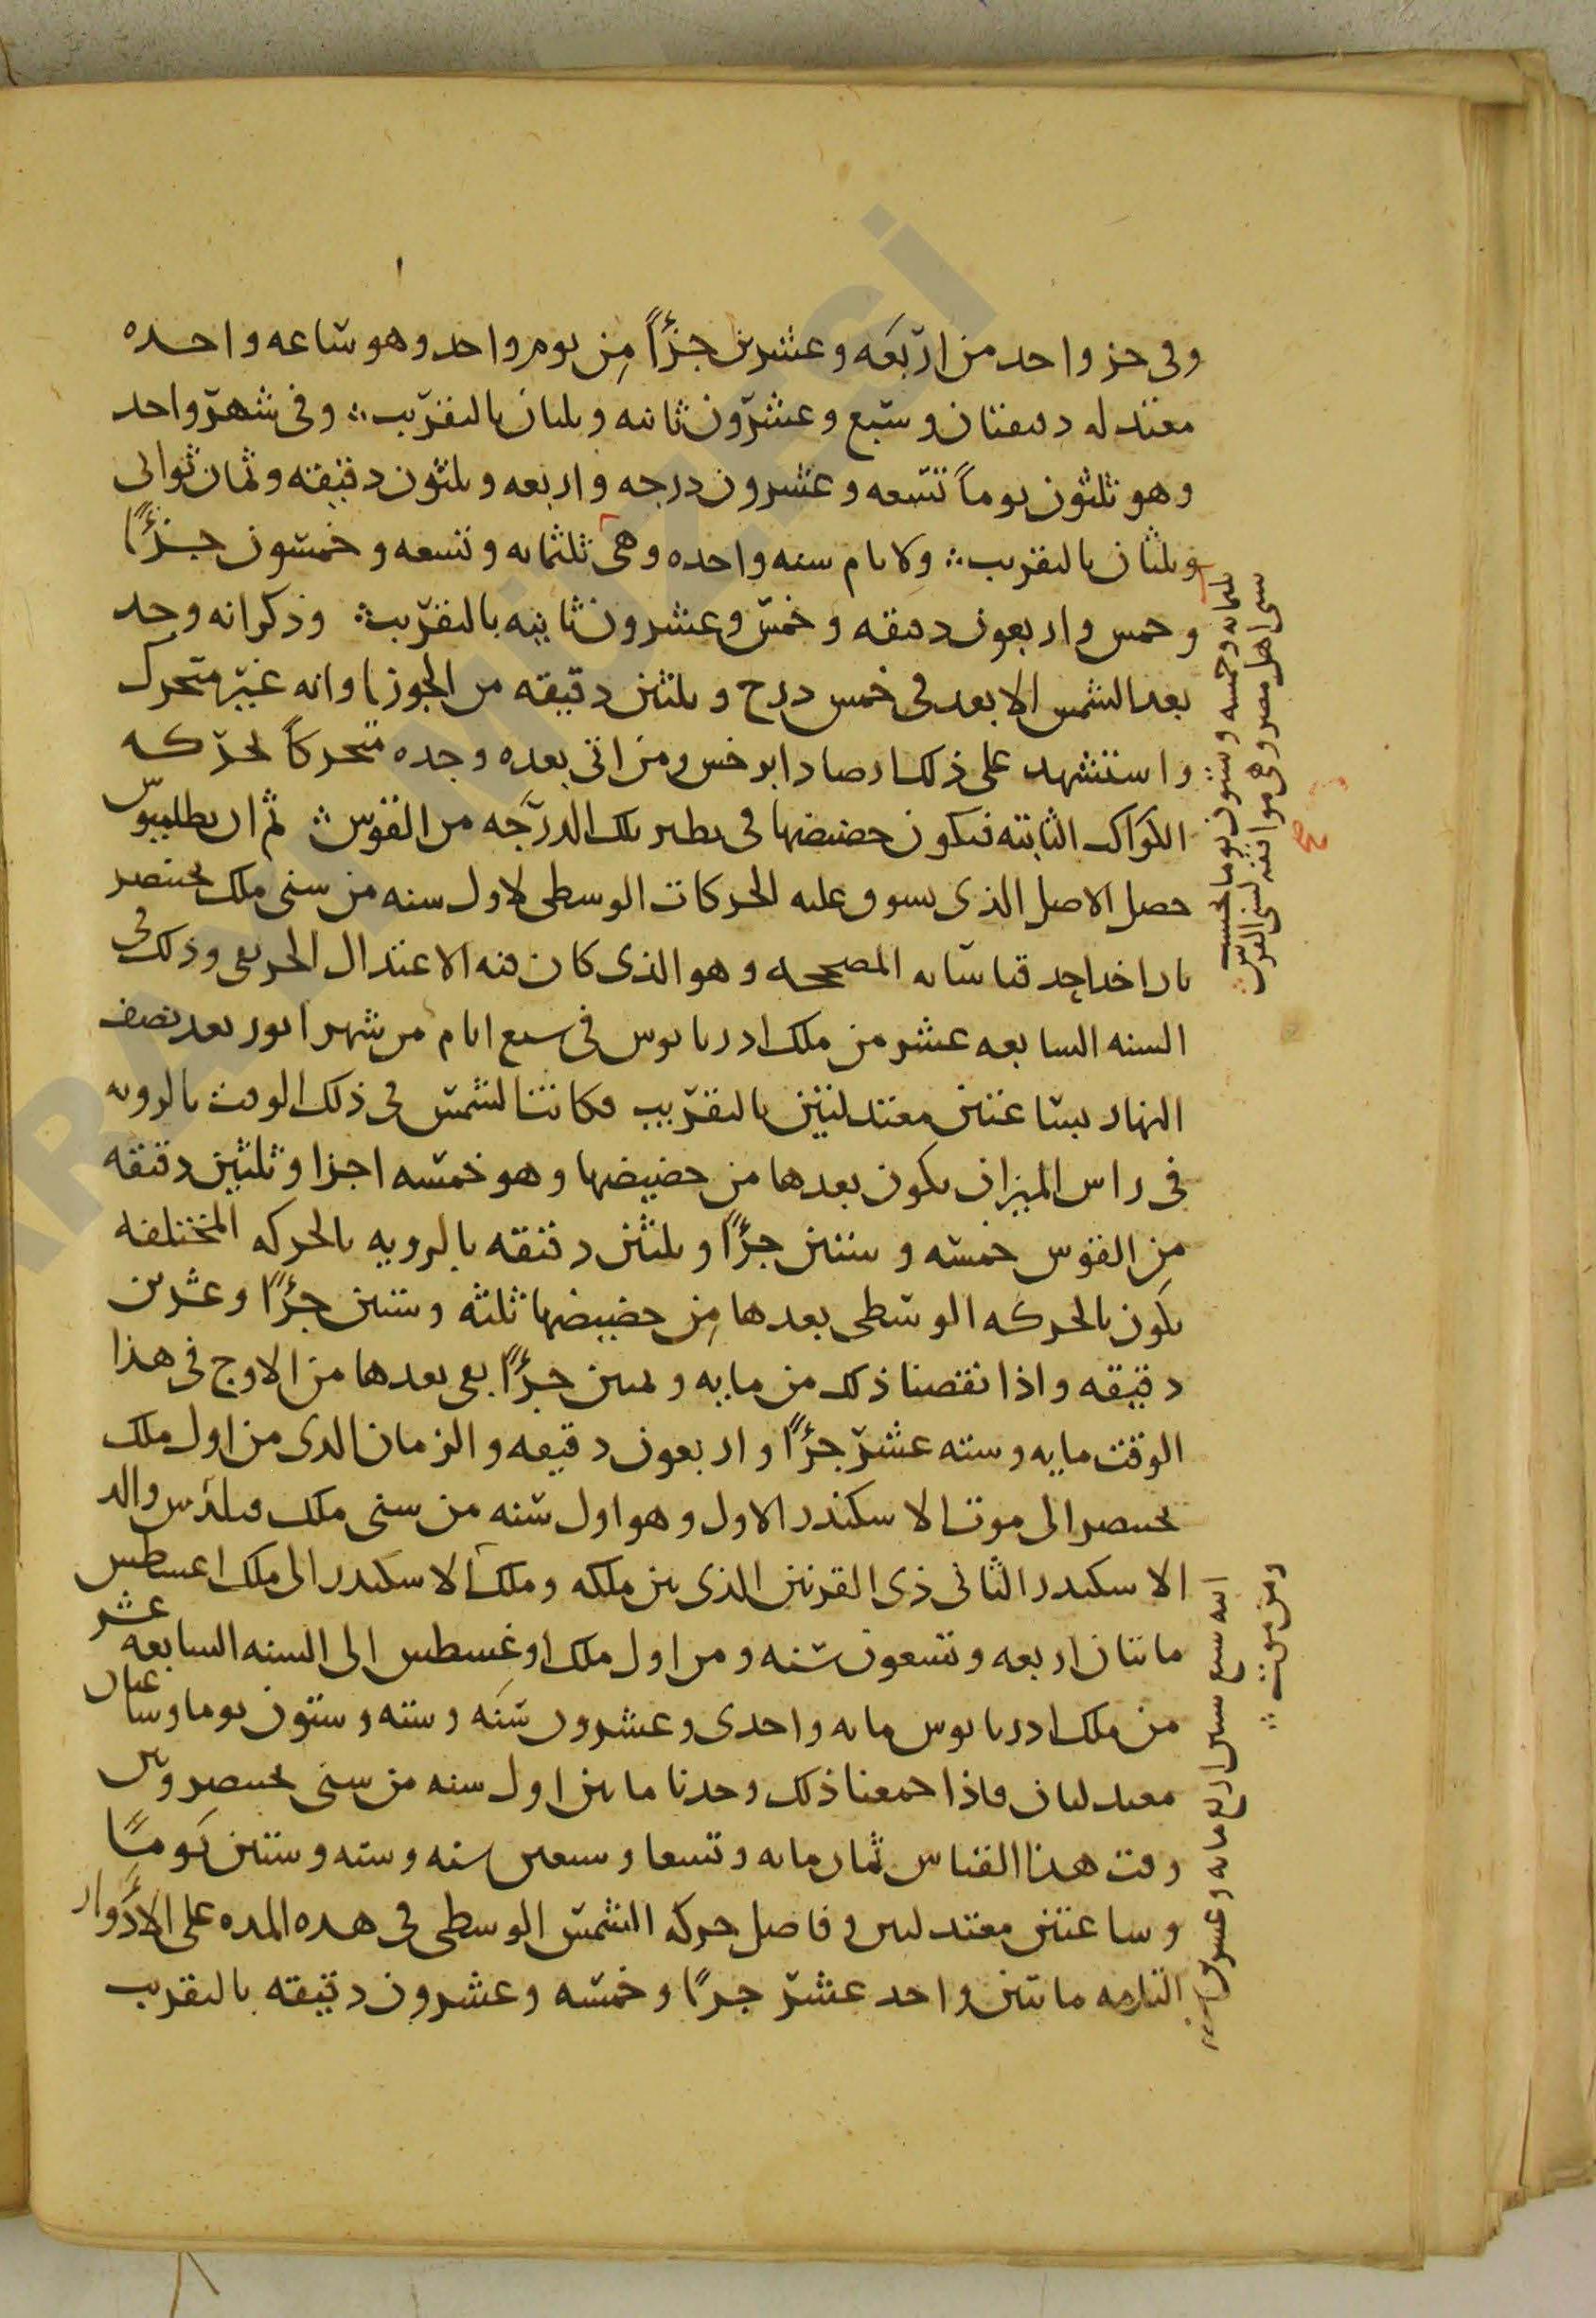 وفى جز واحد من اربعه وعشرين جزءًا من يوم واحد وهو ساعه واحده
معتدله دقيقتان وسبع وعشرون ثانيه وثلثان بالتقريب ؞ وفى شهر واحد
وهو ثلثون يوماً تسعه وعشرون درجه واربعه وثلثون دقيقه وثمان ثوانى
وثلثان بالتقريب ؞ ولايام سنه واحده وهى ثلثمايه وتسعه وخمسون جزءًا
وخمس واربعون دقيقه وخمس وعشرون ثانيه بالتقريب ؞ وذكر انه وجد
بعد الشمس الابعد فى خمس درج وثلثين دقيقه من الجوزا وانه غير متحرك
واستشهد على ذلك ارصاد ابرخس ومن اتى بعده وجده متحركاً بحركه
الكواكب الثابته فيكون حضيضها فى نظير تلك الدرجه من القوس ؞ ثم ان بطلميوس
حصل الاصل الذى يسوق عليه الحركات الوسطى لاول سنه من سنى ملك بختنصر
بان اخذ احد قياساته المصححه وهو الذى كان فيه الاعتدال الخريفى وذلك فى
السنه السابعه عشر من ملك ادريانوس فى سبع ايام من شهر اتور بعد نصف
النهار بساعتين معتدلتين بالتقريب فكانت الشمس فى ذلك الوقت بالرويه
فى راس الميزان يكون بعدها من حضيضها وهو خمسه اجزا وثلثين دقيقه
من القوس خمسه وستين جزءًا وثلثين دقيقه بالرويه بالحركه المختلفه
يكون بالحركه الوسطى بعدها من حضيضها ثلثه وستين جزءًا وعشرين
دقيقه واذا نقصنا ذلك من مايه وثمنين جزءًا بقى بعدها من الاوج فى هذا
الوقت مايه وسته عشر جزءًا واربعون دقيقه والزمان الذى من اول ملك
بختنصر الى موت الاسكندر الاول وهو اول سنه من سنى ملك فيلدس والد
الاسكندر الثانى ذى القرنين الذى بين ملكه وملك الاسكندر الى ملك اغسطس
مائتان اربعه وتسعون سنه ومن اول ملك اوغسطس الى السنه السابعه عشر
من ملك ادريانوس مايه واحدى وعشرون سنه وسته وستون يوما وساعتان
معتدلتان فاذا جمعنا ذلك وجدنا ما بين اول سنه من سنى بختنصر وبين
وقت هذا القياس ثمان مايه وتسعا وسبعين سنه وسته وستين يومًا
وساعتين معتدلتين وفاصل حركه الشمس الوسطى فى هذه المده على الادوار
التامه مائتين واحد عشر جزءًا وخمسه وعشرون دقيقه بالتقريب
ثلثمايه وخمسه وستون يوما بحسب
سنى اهل مصر وهى موافقه لسنى الفرس
اربع مايه وعشرين
ومن موت